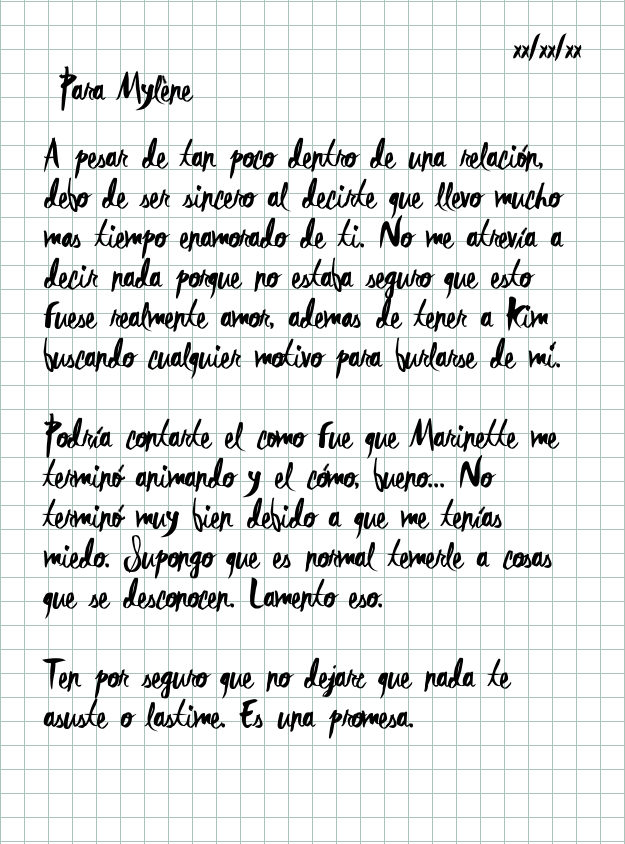 xx/xx/xx
Para Mylène
A pesar de tan poco dentro de una relación,
debo de ser sincero al decirte que llevo mucho
mas tiempo enamorado de ti. No me atrevía a
decir nada porque no estaba seguro que esto
fuese realmente amor, ademas de tener a Kim
buscando cualquier motivo para burlarse de mí.
Podría contarte el como fue que Marinette me
terminó animando y el cómo, bueno... No
terminó muy bien debido a que me tenías
miedo. Supongo que es normal temerle a cosas
que se desconocen. Lamento eso.
Ten por seguro que no dejare que nada te
asuste o lastime. Es una promesa.